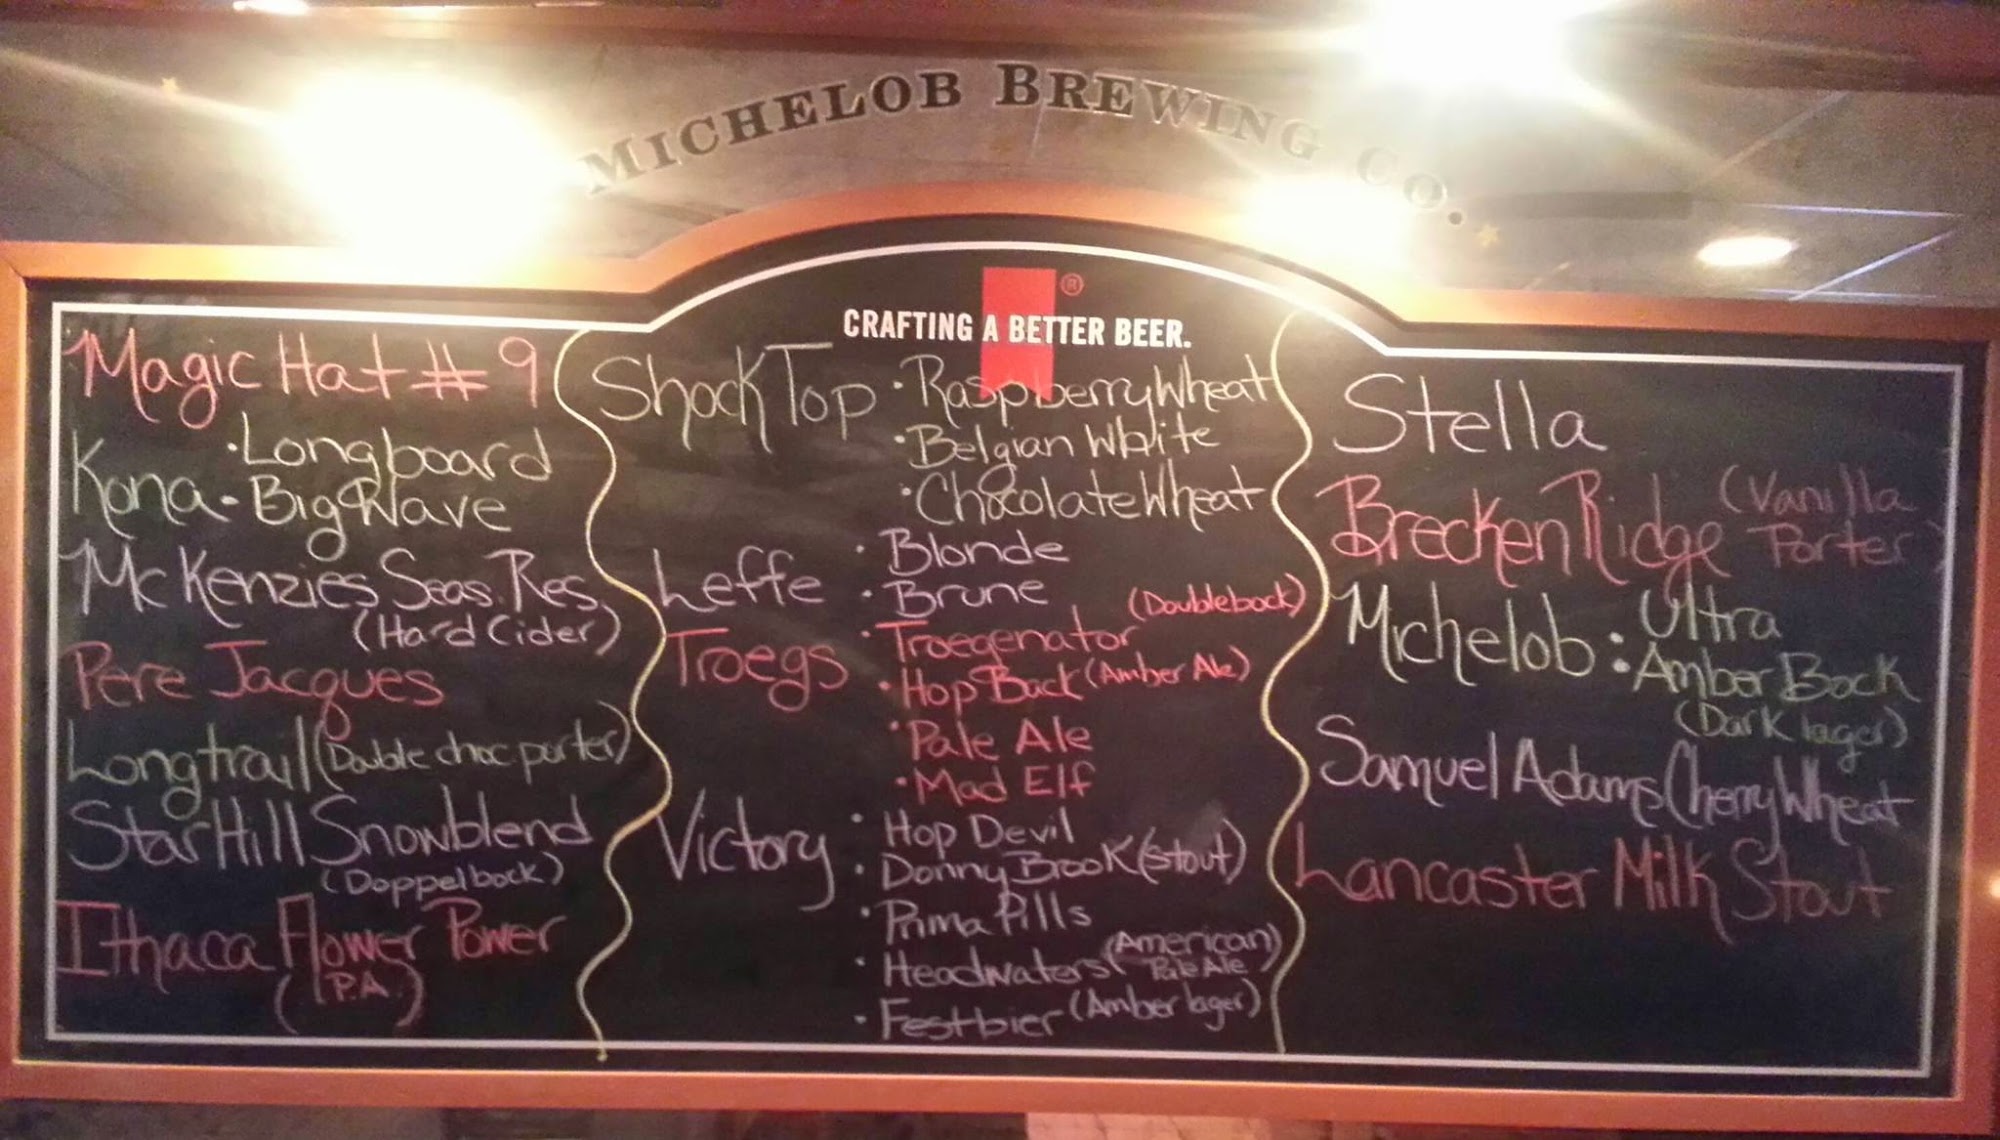 MICHELOB BREWING CO.
CRAFTING A BETTER BEER.
®
Magic Hat # 9
Kona
• Longboard
• Big Wave
McKenzies Seas. Res.
(Hard Cider)
Pere Jacques
Longtrail (Double choc. porter)
Star Hill Snowblend
(Doppelbock)
Ithaca Flower Power
(IPA)
Shock Top
• Raspberry Wheat
• Belgian White
• Chocolate Wheat
Leffe
• Blonde
• Brune
Troegs
(Doublebock)
• Troegenator
• Hop Back (Amber Ale)
• Pale Ale
• Mad Elf
Victory
• Hop Devil
• Donny Brook (stout)
• Prima Pills
• Headwaters (American
Pale Ale)
• Festbier (Amber lager)
Stella
BreckenRidge (Vanilla
Porter)
Michelob
• Ultra
• Amber Bock
(Dark lager)
Samuel Adams Cherry Wheat
Lancaster Milk Stout